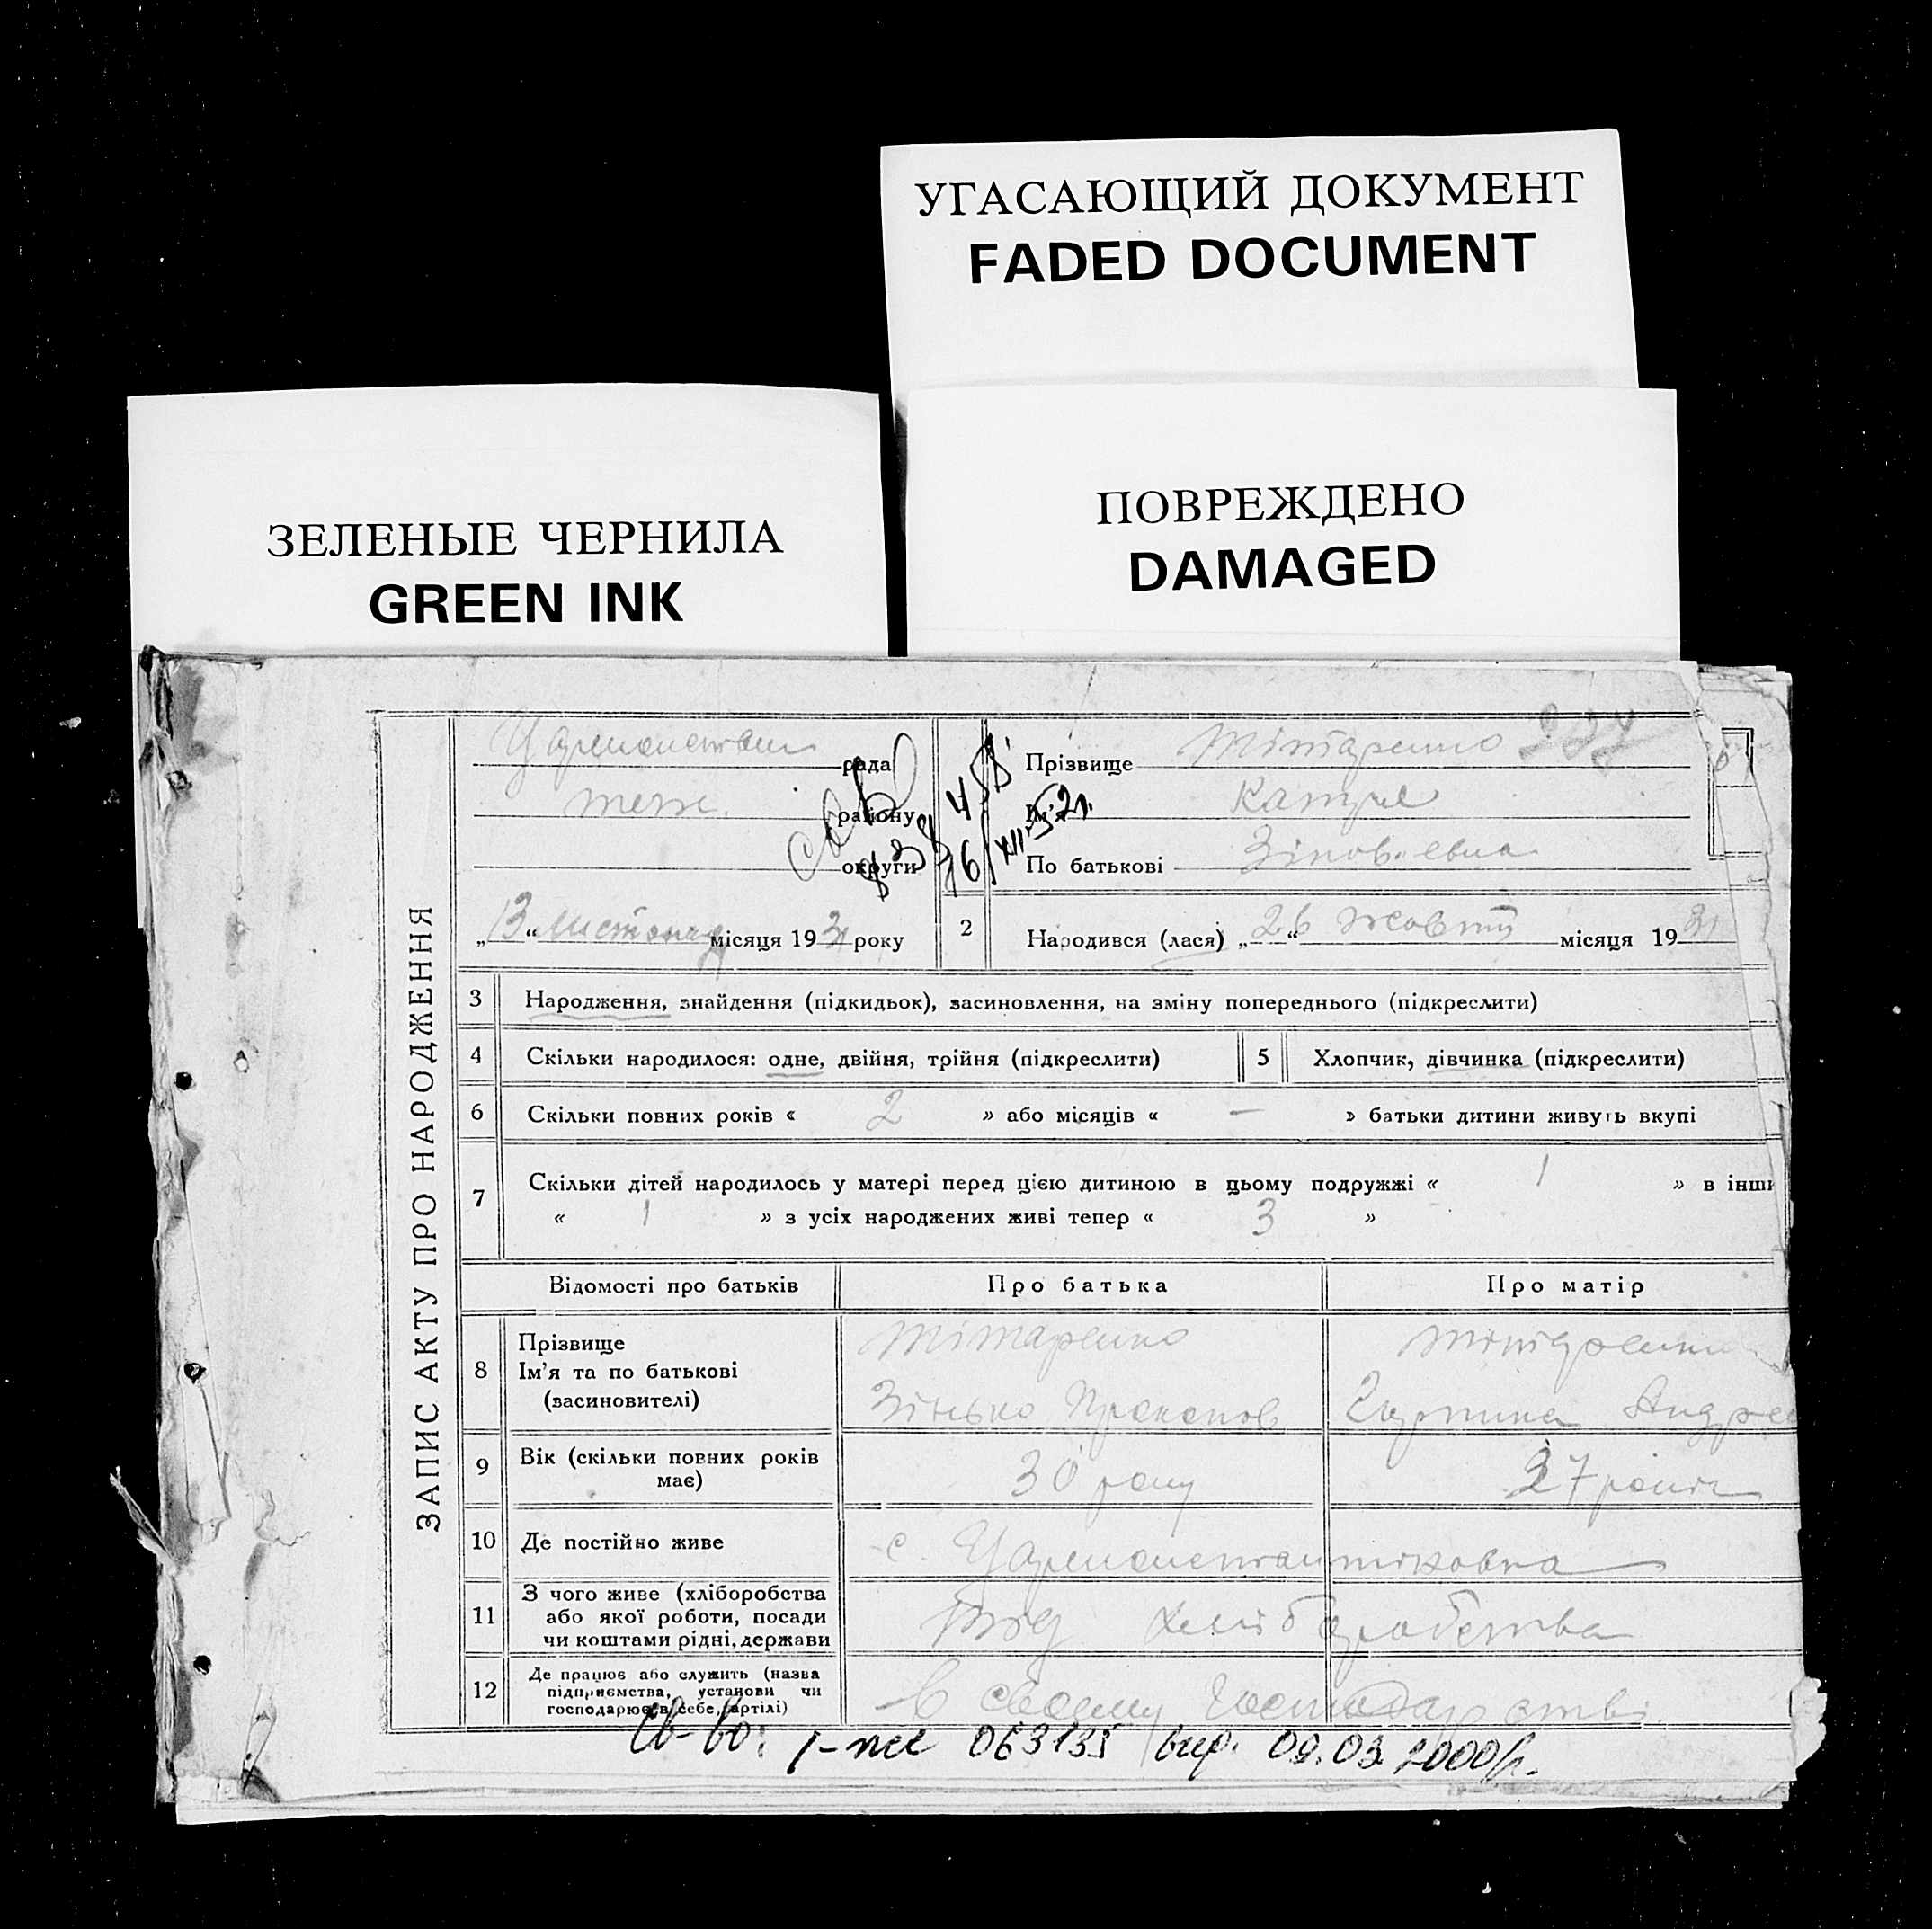 УГАСАЮЩИЙ ДОКУМЕНТ
FADED DOCUMENT
ЗЕЛЕНЫЕ ЧЕРНИЛА
GREEN INK
ПОВРЕЖДЕНО
DAMAGED
ЗАПИС АКТУ ПРО НАРОДЖЕННЯ
рада
району
округи
„13“ місяця 1931 року
Прізвище Тітаренко
Ім'я
По батькові
16/XII-52р.
2 Народився (лася) „26“ жовтн місяця 1931
3 Народження, знайдення (підкидьок), засиновлення, на зміну попереднього (підкреслити)
4 Скільки народилося: одне, двійня, трійня (підкреслити)
5 Хлопчик, дівчинка (підкреслити)
6 Скільки повних років « 2 » або місяців « — » батьки дитини живуть вкупі
7 Скільки дітей народилось у матері перед цією дитиною в цьому подружжі « 1 » в інши
« 1 » з усіх народжених живі тепер « 3 »
Відомості про батьків Про батька Про матір
8 Прізвище
Ім'я та по батькові
(засиновителі)
Тітаренко
Зінько Прокопов
Тітаренко
Андре
9 Вік (скільки повних років
має)
30 року
27 років
10 Де постійно живе
с. Цареконстантиновка
11 З чого живе (хліборобства
або якої роботи, посади
чи коштами рідні, держави
від хліборобства
12 Де працює або служить (назва
підприємства, установи чи
господарює в себе, артілі)
В своєму господарстві
Св-во: 063135 вир. 09.03.2000р.